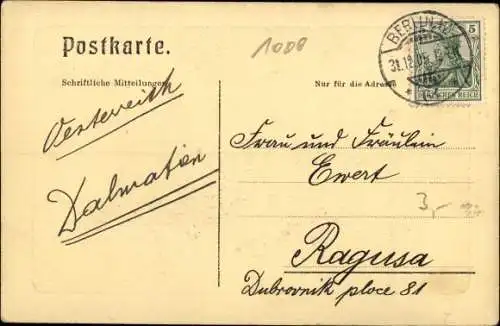 Postkarte.
1008
BERLIN
5
31.12.05
DEUTSCHES REICH
Schriftliche Mitteilungen
Nur für die Adresse
Oesterreich
Dalmatien
Frau und Fräulein
Ewert
3,-
Ragusa
Dubrovnik ploce 81